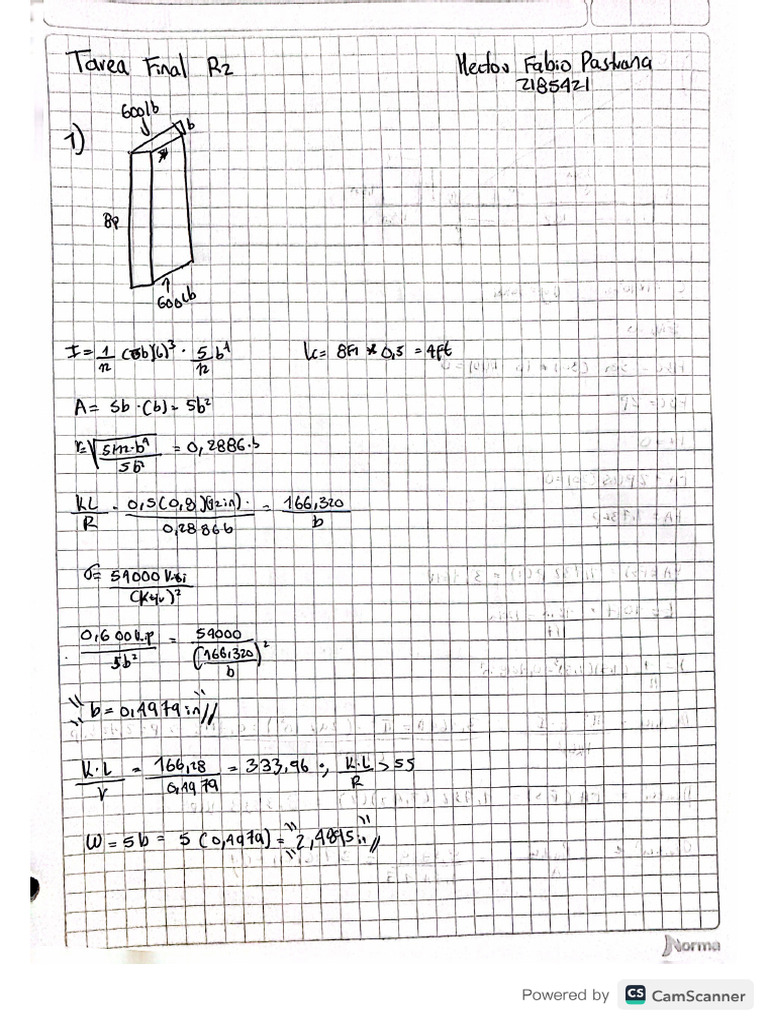 Tarea Final R2
Hector Fabio Pastrana
2185421
1)
600lb
b
8p
600lb
I = 1/12 (5b)(b)³ · 5/12 b⁴
Lc = 8ft * 0,5 = 4ft
A = 5b · (b) = 5b²
r = √ 5/12·b⁴ / 5b² = 0,2886·b
KL / R · 0,5(0,8)(12in) · / 0,2886b = 166,320 / b
σ = 54000 Ksi / (KL/r)²
0,600k.p / 5b² = 54000 / (166,320 / b)²
"b = 0,4979 in"//
K·L / r = 166,28 / 0,4979 = 333,96 ; K·L / R > 55
W = 5b = 5 (0,4979) = "2,4895in"//
Norma
Powered by CS CamScanner